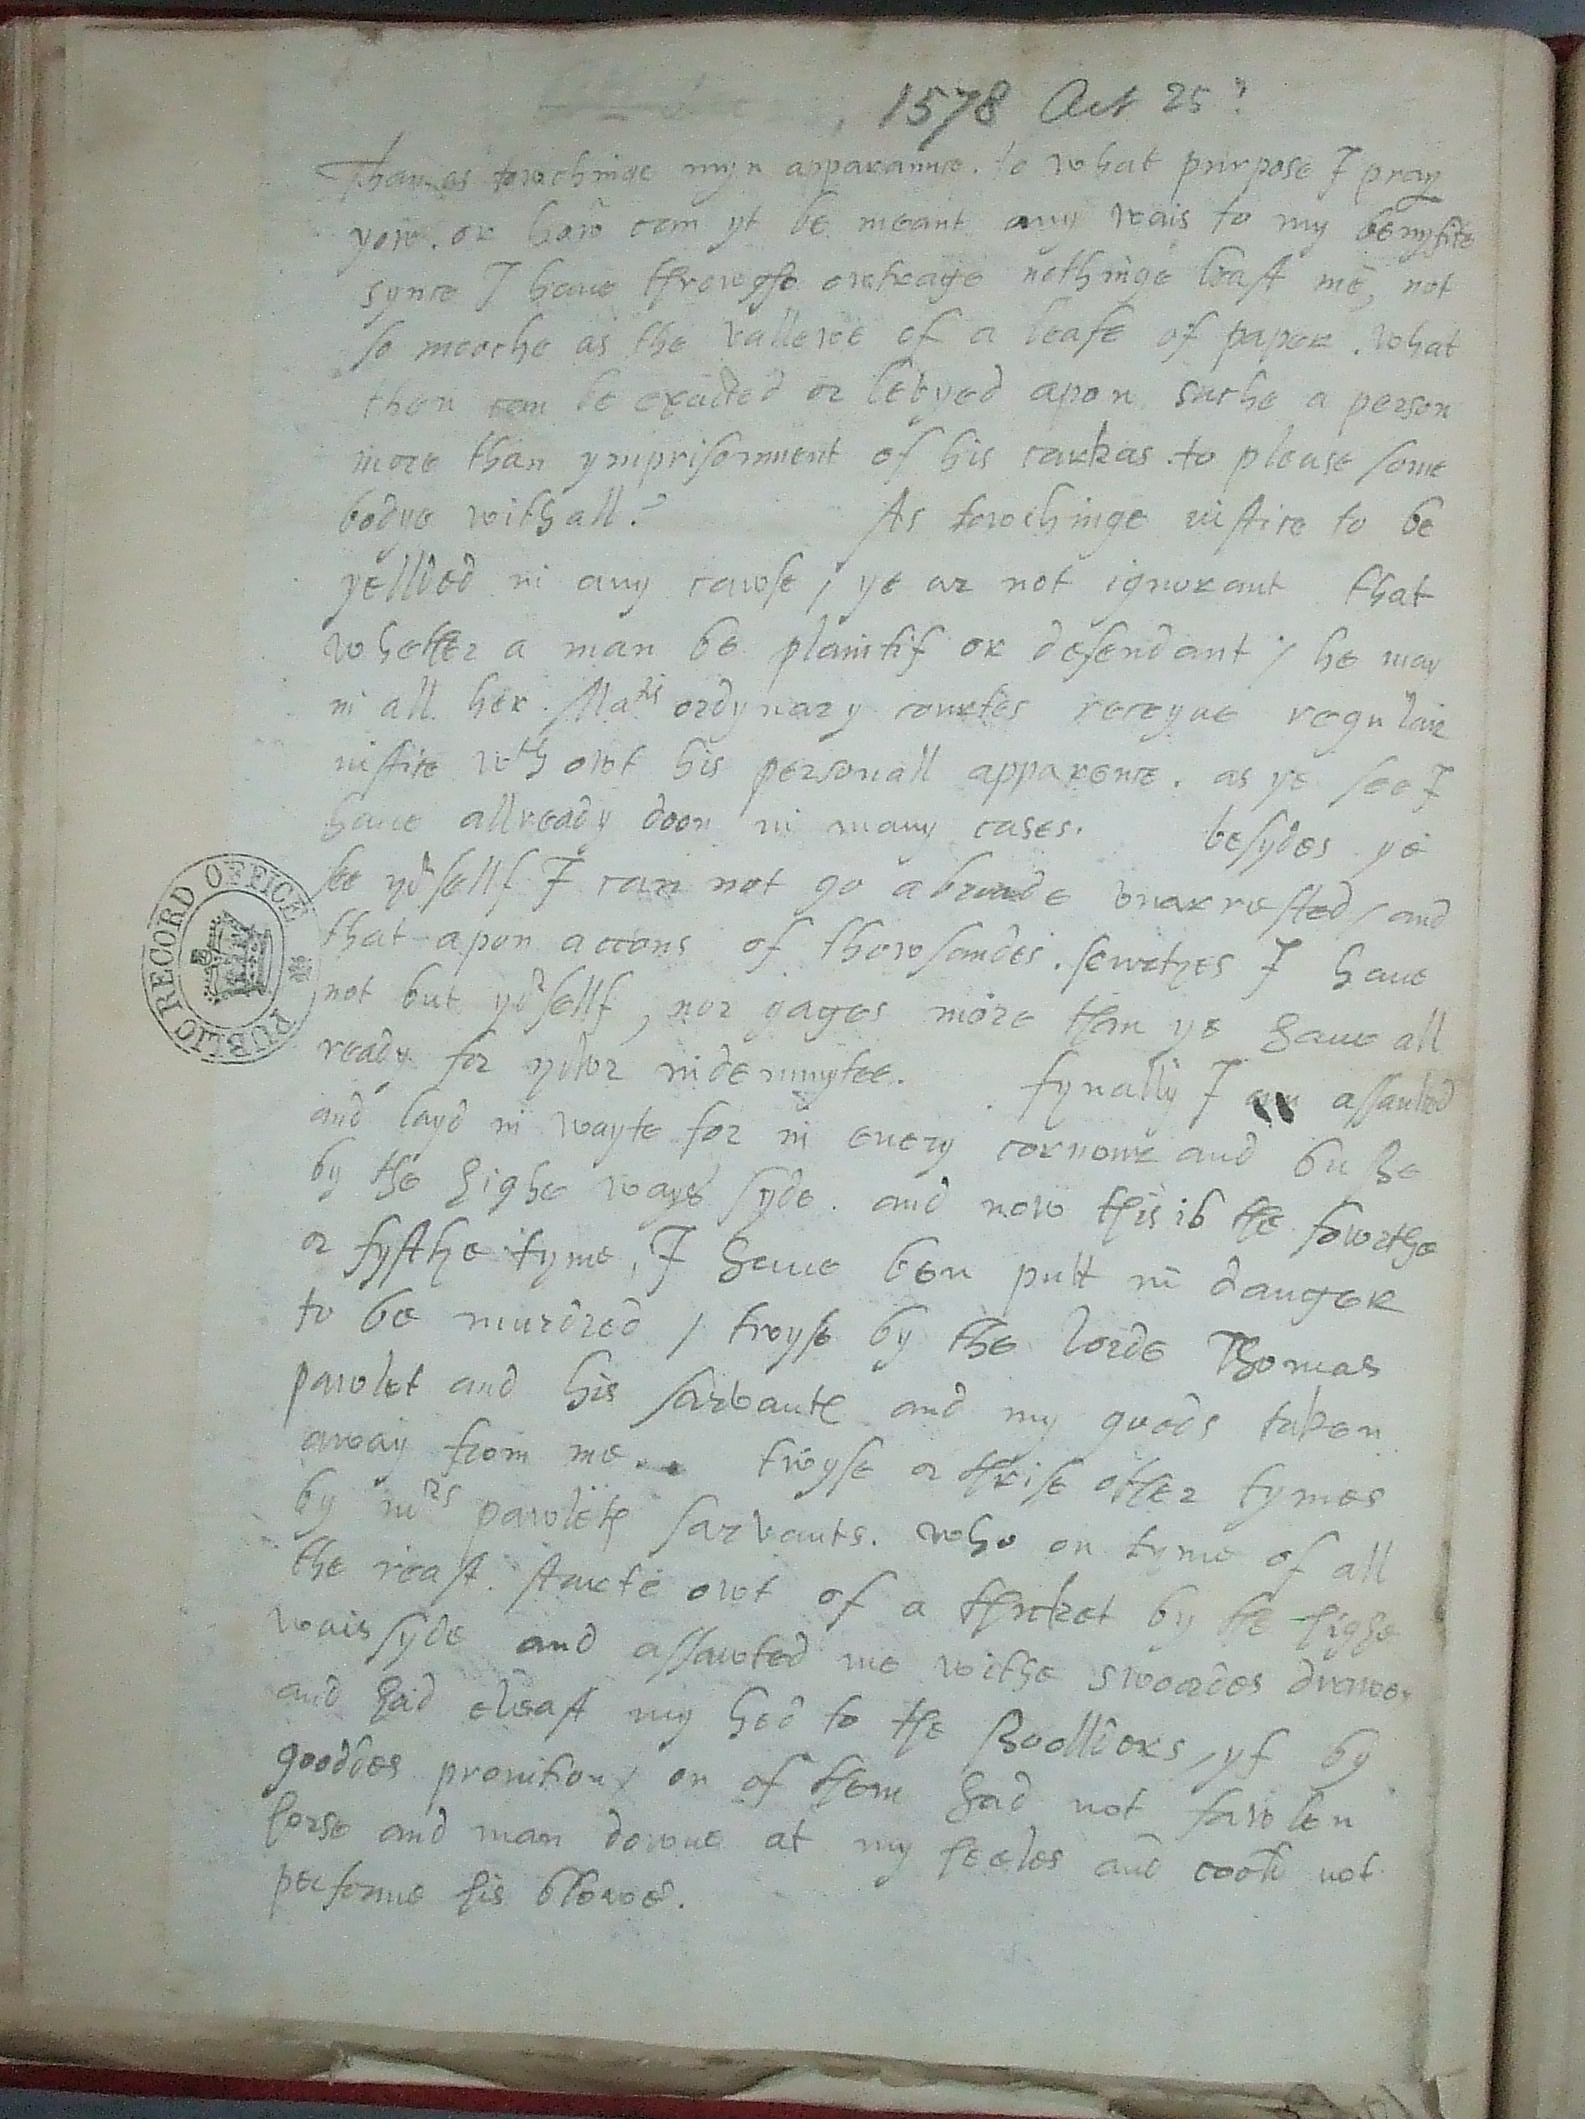 1578 Oct 25
Thamas towchinge myn apparaunce. to what purpose I pray
yow. or how can yt be meant any wais to my benyfite
synce I have throwghe owtrage nothinge least me, not
so mooche as the vallewe of a leafe of paper. what
then can be exacted or levyed apon suche a person
more than ymprisonment of his carkas. to please some
bodye withall? As towchinge iustice to be
yellded in any cawse / ye ar not ignorant that
whether a man be plaintif or defendant / he may
in all her Matis ordynary courtes receyve regular
iustice wth owt his personall apparence. as ye see I
have allready doon in many cases. besydes ye
see yorsellf I can not go abrode vnarrested / and
that apon accons of thowsandes. sewrtyes I have
not but yorsellf, nor gages more then ye have all
ready for yowr indemnytee. fynally I am assauted
and layd in wayte for in every cornowr and bushe
by the highe ways syde. and now this is the fowrthe
or fyfthe tyme, I have ben putt in danger
to be murdred / twyse by the lorde Thomas
pawlet and his sarvantes and my goods taken
away from me. twyse or thrise other tymes
by mrs pawletes sarvants. who on tyme of all
the reast. starte owt of a thicket by the highe
wais syde and assawted me withe swoordes drawen
and had cleaft my hed to the shoollders, yf by
goodes provition / on of them had not fawlen
horse and man downe at my heeles and coold not
performe his blowe.
PUBLIC RECORD OFFICE